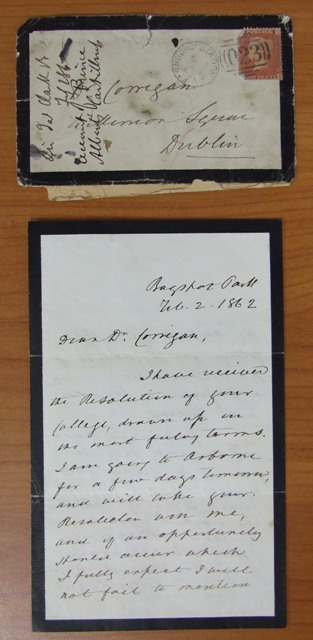 Sir Jas Clark Bt
Feb 1862
account of Prince
Albert's last illness
Dr Corrigan
4 Merrion Square
Dublin
BAGSHOT STATION
Bagshot Park
Feb. 2. 1862
Dear Dr. Corrigan,
I have received
the Resolution of your
College, drawn up in
the most feeling terms.
I am going to Osborne
for a few days tomorrow,
and will take your
Resolution with me,
and if an opportunity
should occur which
I fully expect I will
not fail to mention